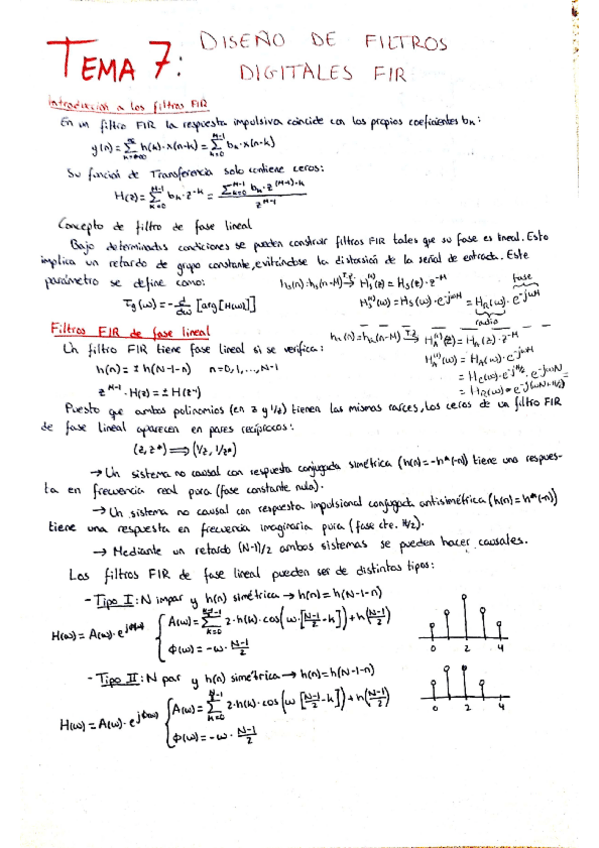 TEMA 7: DISEÑO DE FILTROS
DIGITALES FIR
Introducción a los filtros FIR
En un filtro FIR la respuesta impulsiva coincide con los propios coeficientes bₖ:
y(n) = Σ h(k)·x(n-k) = Σ bₖ·x(n-k)
Su función de Transferencia solo contiene ceros:
H(z) = Σ bₖ·z^-k = Σ bₖ·z^(M-1)-k / z^M-1
Concepto de filtro de fase lineal
Bajo determinadas condiciones se pueden construir filtros FIR tales que su fase es lineal. Esto
implica un retardo de grupo constante, evitándose la distorsión de la señal de entrada. Este
parámetro se define como:
τg(ω) = -d/dω [arg[H(ω)]]
fase
radio
Filtros FIR de fase lineal
Un filtro FIR tiene fase lineal si se verifica:
h(n) = ± h(N-1-n) n=0,1,...,N-1
z^N-1·H(z) = ± H(z⁻¹)
Puesto que ambos polinomios (en z y 1/z) tienen las mismas raíces, los ceros de un filtro FIR
de fase lineal aparecen en pares recíprocos:
(z, z*) ⟹ (1/z, 1/z*)
→ Un sistema no causal con respuesta conjugada simétrica (h(n)=-h*(-n)) tiene una respues-
ta en frecuencia real pura (fase constante nula).
→ Un sistema no causal con respuesta impulsional conjugada antisimétrica (h(n)=h*(-n))
tiene una respuesta en frecuencia imaginaria pura (fase cte. π/2).
→ Mediante un retardo (N-1)/2 ambos sistemas se pueden hacer causales.
Los filtros FIR de fase lineal pueden ser de distintos tipos:
- Tipo I: N impar y h(n) simétrica → h(n)=h(N-1-n)
A(ω) = Σ 2·h(k)·cos(ω·[N-1/2 -k]) + h(N-1/2)
H(ω) = A(ω)·e^jϕ(ω)
ϕ(ω) = -ω·N-1/2
0 2 4
- Tipo II: N par y h(n) simétrica → h(n)=h(N-1-n)
A(ω) = Σ 2·h(k)·cos(ω [N-1/2 -k]) + h(N-1/2)
H(ω) = A(ω)·e^jϕ(ω)
ϕ(ω) = -ω·N-1/2
0 2 4